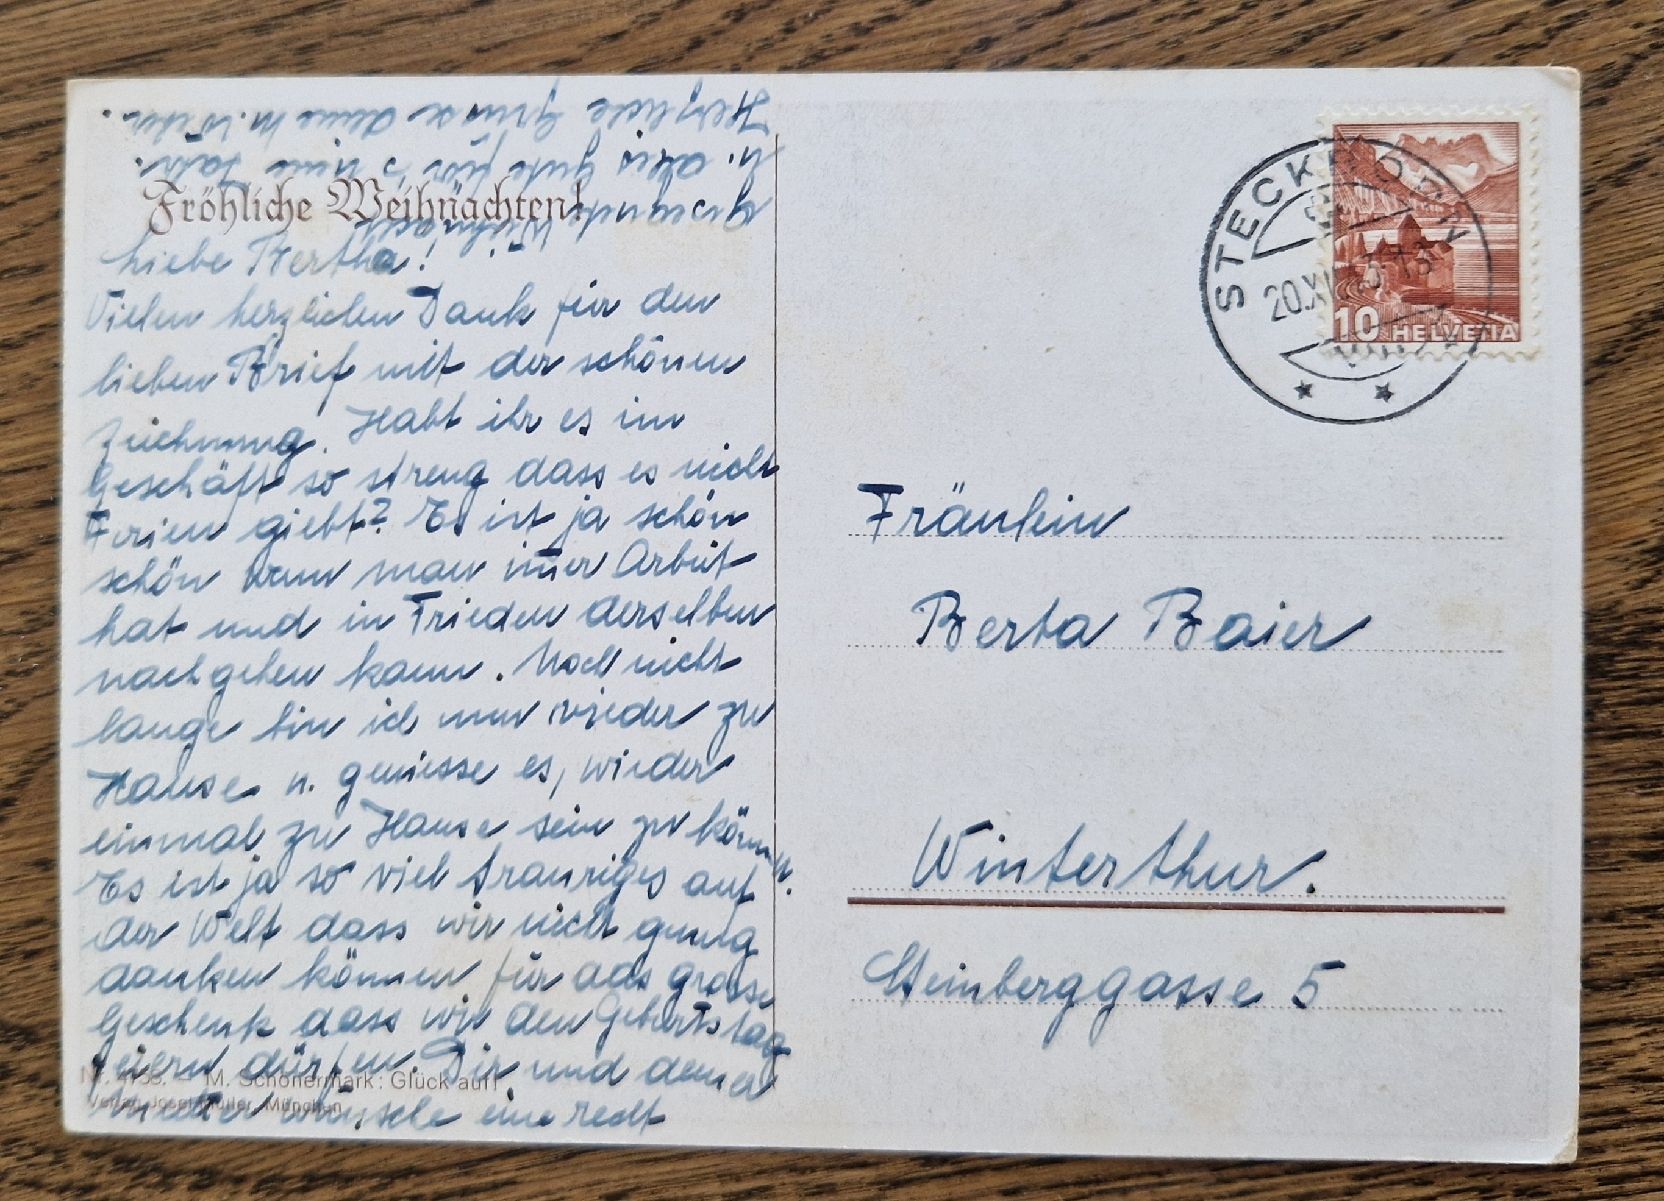 Fröhliche Weihnachten!
Liebe Bertha!
Vielen herzlichen Dank für den
lieben Brief mit der schönen
Zeichnung. Habt ihr es im
Geschäft so streng dass es nicht
Ferien giebt? Es ist ja schön
schön wenn man im̅er Arbeit
hat und in Frieden derselben
nachgehen kann. Noch nicht
lange bin ich nun wieder zu
Hause u. geniesse es, wieder
einmal zu Hause sein zu können.
Es ist ja so viel trauriges auf
der Welt dass wir nicht genug
danken können für das grosse
Geschenk dass wir den Geburtstag
feiern dürfen. Dir und deiner
Mutter wünsche eine recht
gesegnete Weihnacht
u. alles gute für's neue Jahr.
Herzliche Grüsse deine M.
Nr. — M. Schönermark: Glück auf!
Verlag Josef Müller, München
STECKBORN
20.XII
10 HELVETIA
Fräulein
Berta Baier
Winterthur.
Steinberggasse 5